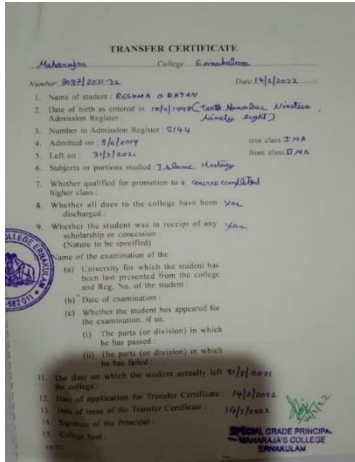 TRANSFER CERTIFICATE
Maharajas College Ernakulam
Number 3087/2021-22 Date 14/2/2022
1. Name of student : RESHMA
2. Date of birth as entered in 10/11/1998 (Tenth November Nineteen
Admission Register : Ninety Eight)
3. Number in Admission Register : 5144
4. Admitted on : 3/6/2019 into class I MA
5. Left on : 31/3/2021 from class II MA
6. Subjects or portions studied : Islamic History
7. Whether qualified for promotion to a course completed
higher class :
8. Whether all dues to the college have been Yes
discharged :
9. Whether the student was in receipt of any Yes
scholarship or concession :
(Nature to be specified)
Name of the examination of the
(a) University for which the student has
been last presented from the college
and Reg. No. of the student :
(b) Date of examination :
(c) Whether the student has appeared for
the examination, if so,
(i) The parts (or division) in which
he has passed :
(ii) The parts (or division) in which
he has failed :
11. The date on which the student actually left 31/3/2021
the college :
12. Date of application for Transfer Certificate : 14/2/2022
13. Date of issue of the Transfer Certificate : 14/2/2022
14. Signature of the Principal :
15. College Seal :
SPECIAL GRADE PRINCIPAL
MAHARAJA'S COLLEGE
ERNAKULAM
COLLEGE ERNAKULAM
682 011